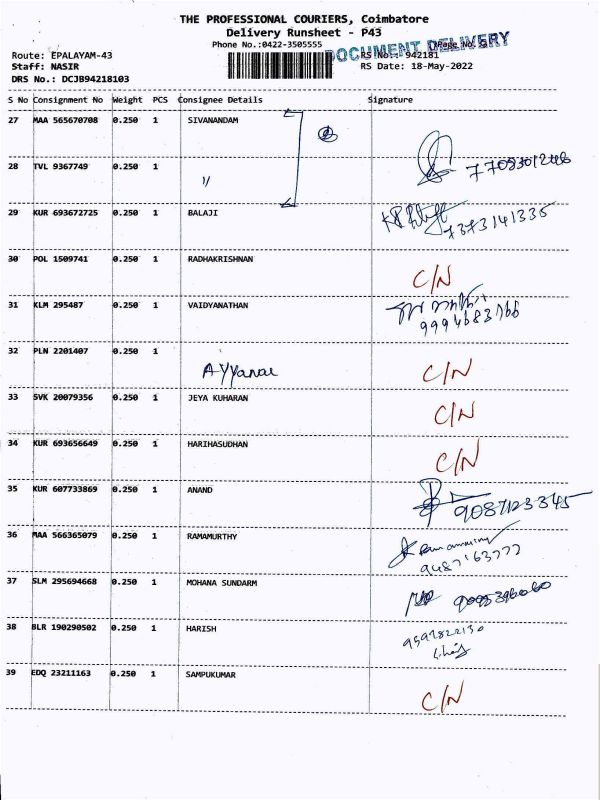 THE PROFESSIONAL COURIERS, Coimbatore
Delivery Runsheet - P43
Phone No.:0422-3505555
DOCUMENT DELIVERY
Route: EPALAYAM-43
RS No.: 942181
Staff: NASIR
RS Date: 18-May-2022
DRS No.: DCJB94218103
S No Consignment No Weight PCS Consignee Details Signature
27 MAA 565670708 0.250 1 SIVANANDAM
28 TVL 9367749 0.250 1 〃
29 KUR 693672725 0.250 1 BALAJI 7373141335
30 POL 1509741 0.250 1 RADHAKRISHNAN C/N
31 KLM 295487 0.250 1 VAIDYANATHAN
32 PLN 2201407 0.250 1 Ayyanar C/N
33 SVK 20079356 0.250 1 JEYA KUHARAN C/N
34 KUR 693656649 0.250 1 HARIHASUDHAN C/N
35 KUR 607733869 0.250 1 ANAND
36 MAA 566365079 0.250 1 RAMAMURTHY
37 SLM 295694668 0.250 1 MOHANA SUNDARM
38 BLR 190290502 0.250 1 HARISH
39 EDQ 23211163 0.250 1 SAMPUKUMAR C/N